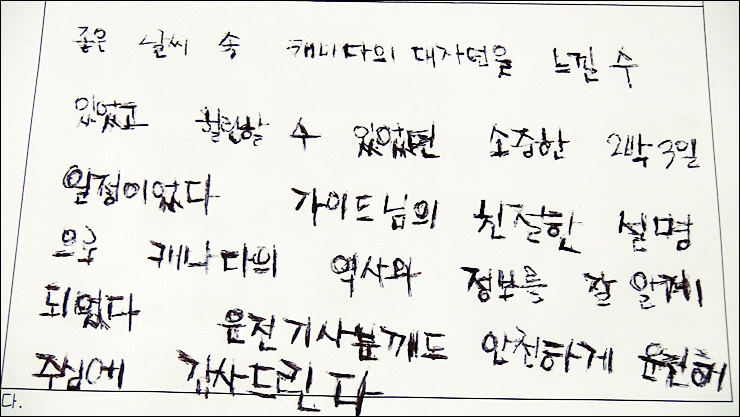 좋은 날씨 속 캐나다의 대자연을 느낄 수
있었고 힐링할 수 있었던 소중한 2박3일
일정이었다 가이드님의 친절한 설명
으로 캐나다의 역사와 정보를 잘 알게
되었다 운전기사분께도 안전하게 운전해
주심에 감사드린다
다.